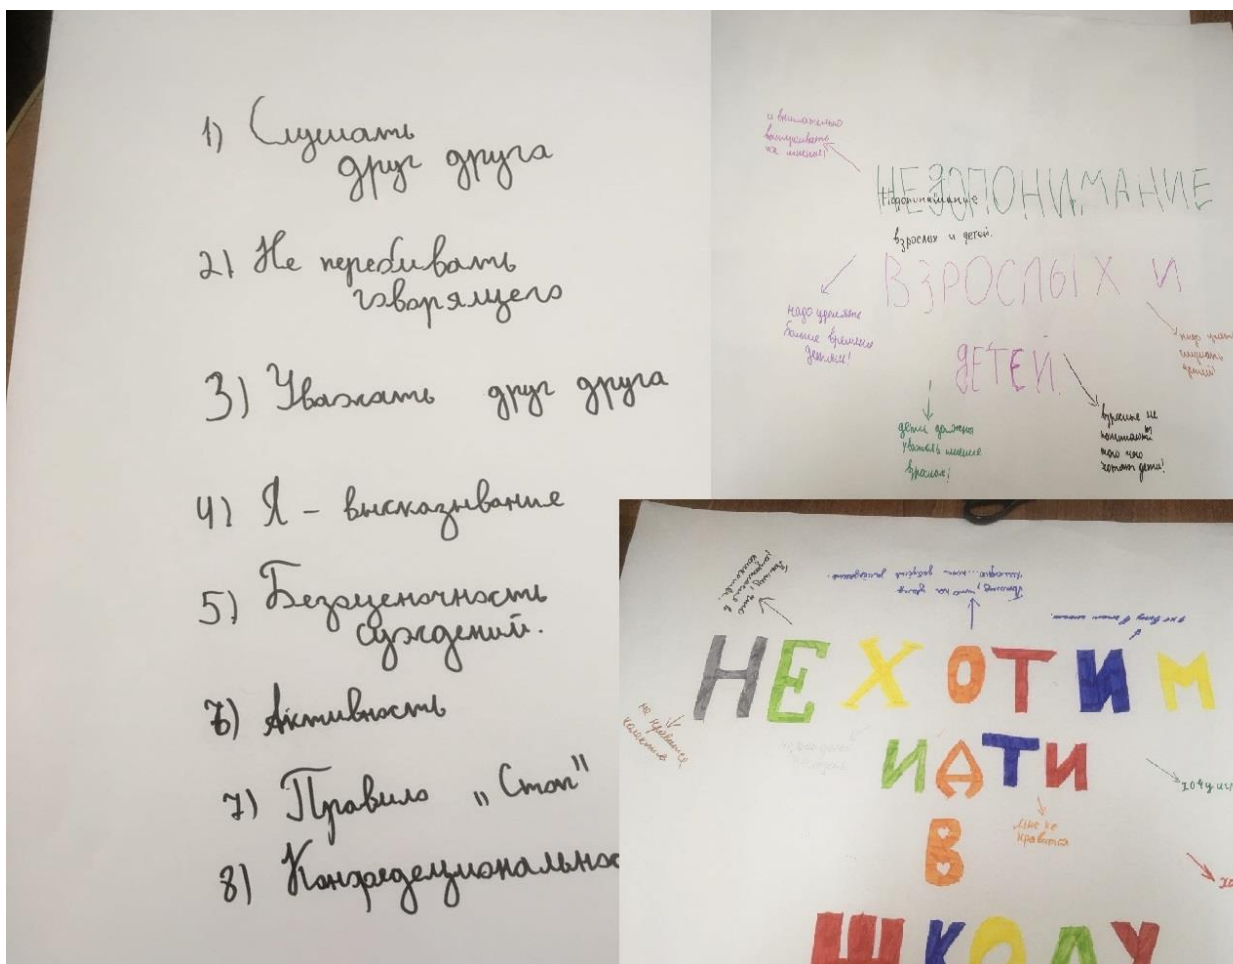 1) Слушать
друг друга
2) Не перебивать
говорящего
3) Уважать друг друга
4) Я - высказывание
5) Безоценочность
суждений.
6) Активность
7) Правило „Стоп"
8) Конфиденциональнос
и внимательно
на мнение!
НЕДОПОНИМАНИЕ
Недопонимание
взрослых и детей.
ВЗРОСЛЫХ И
надо уделять
больше времени
детям!
ДЕТЕЙ.
надо
детей!
дети должны
уважать мнение
взрослых!
взрослые не
понимают
того чего
хотят дети!
НЕ ХОТИМ
не нравится
ИДТИ
хочу
мне не
нравится
В
ШКОЛУ